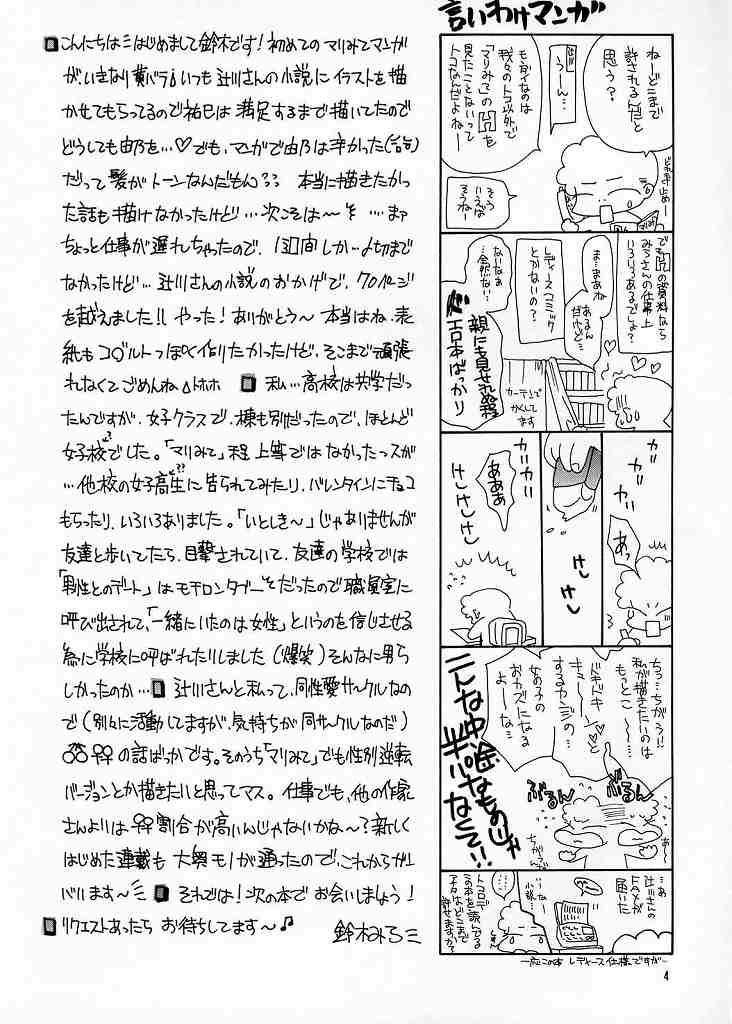 言いわけマンガ
ねーどこまで
許されるんだと
思う？
うーん…
モンダイなのは
我々のトコ以外で
「マリみて」の囚を
見たことないって
トコなんだよねー
そう
いえば
そうねー
でも囚の資料なら
みろさんの仕事上
いろいろあるでしょ？
ま…まあね
あるん
だけど…
レディースコミック
とかないの？
ないなぁ
…全然ない…
親にも見せれぬ程
エロ本ばかり
カーテンで
かくして
ます
ガガガッ
あっ
けしけし
ガガガッ
あああ
けしけしけし
ちっ…ちがう!!
私が描きたいのは
もっとこ〜…
ドキドキ♡
キューンと
するカンジの
女の子の
おカズになる
よーな…
ぶるんぶるん
こんな中途
半パなものじゃ
なくて!!
辻川さんの
FAXが
届いた
…小説…
トコロで
この本を読んでる
アナタはどこまで
許せますか？
一応この本 レディース仕様ですが…
4
こんにちは ミ はじめまして鈴木です！初めてのマリみてマンガ
が、いきなり黄バラ！いつも辻川さんの小説にイラストを描
かせてもらってるので祐巳は満足するまで描いてたので
どうしても由乃を…♡でも、マンガで由乃は辛かった（泣）
だって髪がトーンなんだもん？？ 本当に描きたかっ
た話も描けなかったけど…次こそは〜そ…まァ
ちょっと仕事が遅れちゃったので、1週間しか〆切まで
なかったけど…辻川さんの小説のおかげで、70ページ
を越えました!! やった！ありがとう〜本当はね、表
紙もコバルトっぽく作りたかったけど、そこまで頑張
れなくてごめんね△トホホ 私…高校は共学だっ
たんですが、女子クラスで、棟も別だったので、ほとんど
女子校でした。「マリみて」程上等ではなかったっスが
…他校の女子高生に告られてみたり、バレンタインにチョコ
もらったり、いろいろありました。「いとしき〜」じゃありませんが
友達と歩いてたら、目撃されていて、友達の学校では
「男性とのデート」はモチロンタブーそだったので職員室に
呼び出されて、「一緒にいたのは女性」というのを信じさせる
為に学校に呼ばれたりしました（爆笑）そんなに男ら
しかったのか… 辻川さんと私って、同性愛サークルなの
で（別々に活動してますが、気持ちが同サークルなのだ）
♂♂♀♀の話ばっかです。そのうち「マリみて」でも性別逆転
バージョンとか描きたいと思ってマス。仕事でも、他の作家
さんよりは♀♀割合が高いんじゃないかな〜？新しく
はじめた連載も大奥モノが通ったので、これからガン
バリます〜ミ それでは！次の本でお会いしましょう！
リクエストあったら お待ちしてます〜♪ 鈴木みろミ